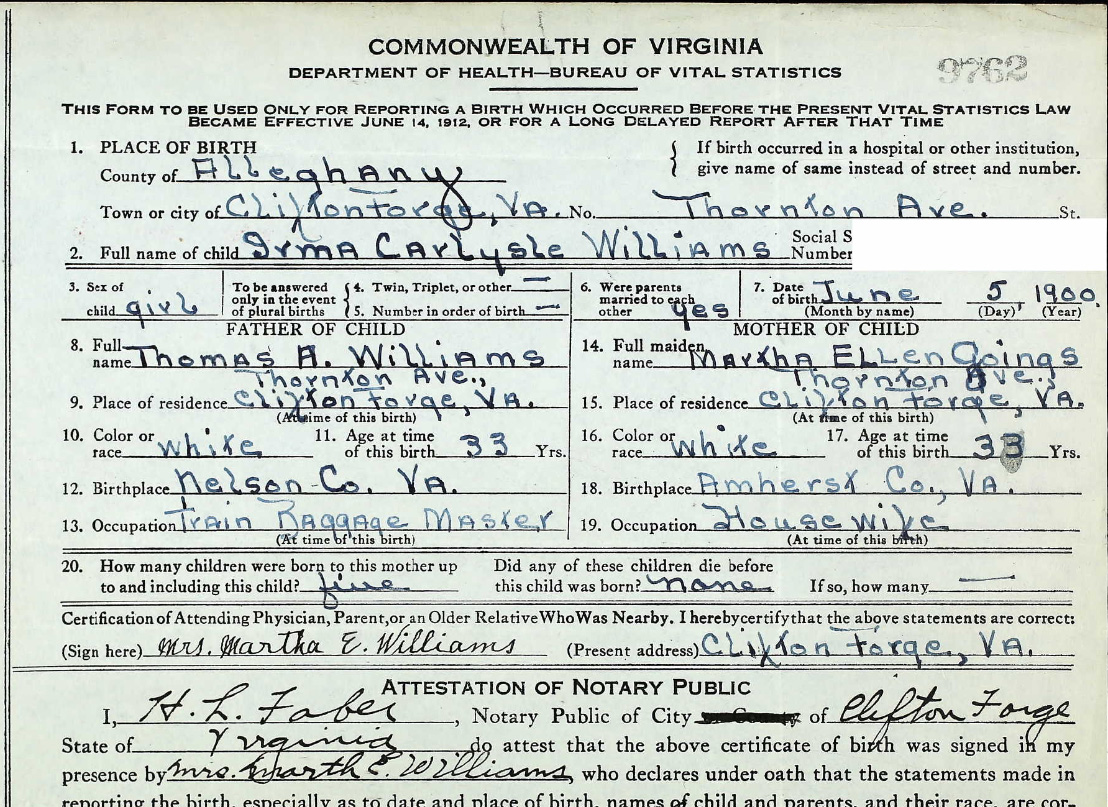 COMMONWEALTH OF VIRGINIA
DEPARTMENT OF HEALTH—BUREAU OF VITAL STATISTICS
9762
THIS FORM TO BE USED ONLY FOR REPORTING A BIRTH WHICH OCCURRED BEFORE THE PRESENT VITAL STATISTICS LAW
BECAME EFFECTIVE JUNE 14, 1912, OR FOR A LONG DELAYED REPORT AFTER THAT TIME
1. PLACE OF BIRTH
County of Alleghany
{ If birth occurred in a hospital or other institution,
give name of same instead of street and number.
Town or city of Clifton Forge, VA. No. Thornton Ave. St.
2. Full name of child Irma Carlysle Williams Social S
Number
3. Sex of child girl
To be answered only in the event of plural births { 4. Twin, Triplet, or other —
5. Number in order of birth —
6. Were parents married to each other yes
7. Date of birth June 5, 1900.
(Month by name) (Day) (Year)
FATHER OF CHILD
8. Full name Thomas A. Williams
Thornton Ave.,
9. Place of residence Clifton Forge, VA.
(At time of this birth)
10. Color or race white 11. Age at time of this birth 33 Yrs.
12. Birthplace Nelson Co. VA.
13. Occupation Train Baggage Master
(At time of this birth)
MOTHER OF CHILD
14. Full maiden name Martha Ellen Goings
Thornton Ave.,
15. Place of residence Clifton Forge, VA.
(At time of this birth)
16. Color or race white 17. Age at time of this birth 33 Yrs.
18. Birthplace Amherst Co., VA.
19. Occupation Housewife
(At time of this birth)
20. How many children were born to this mother up
to and including this child? five
Did any of these children die before
this child was born? none If so, how many —
Certification of Attending Physician, Parent, or an Older Relative Who Was Nearby. I hereby certify that the above statements are correct:
(Sign here) Mrs. Martha E. Williams (Present address) Clifton Forge, VA.
ATTESTATION OF NOTARY PUBLIC
I, H. L. Faber, Notary Public of City or County of Clifton Forge
State of Virginia do attest that the above certificate of birth was signed in my
presence by Mrs. Marth E. Williams, who declares under oath that the statements made in
reporting the birth, especially as to date and place of birth, names of child and parents, and their race, are cor-